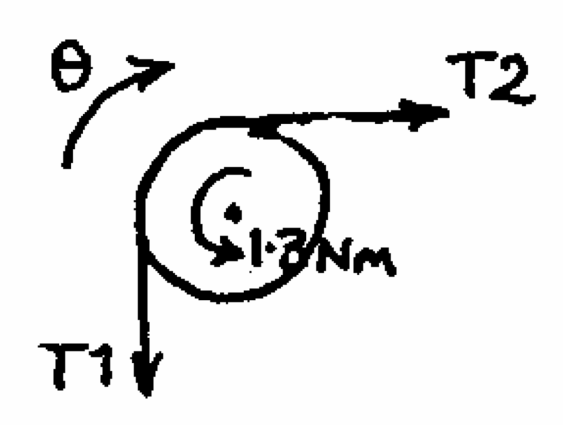 θ
T2
1.3Nm
T1